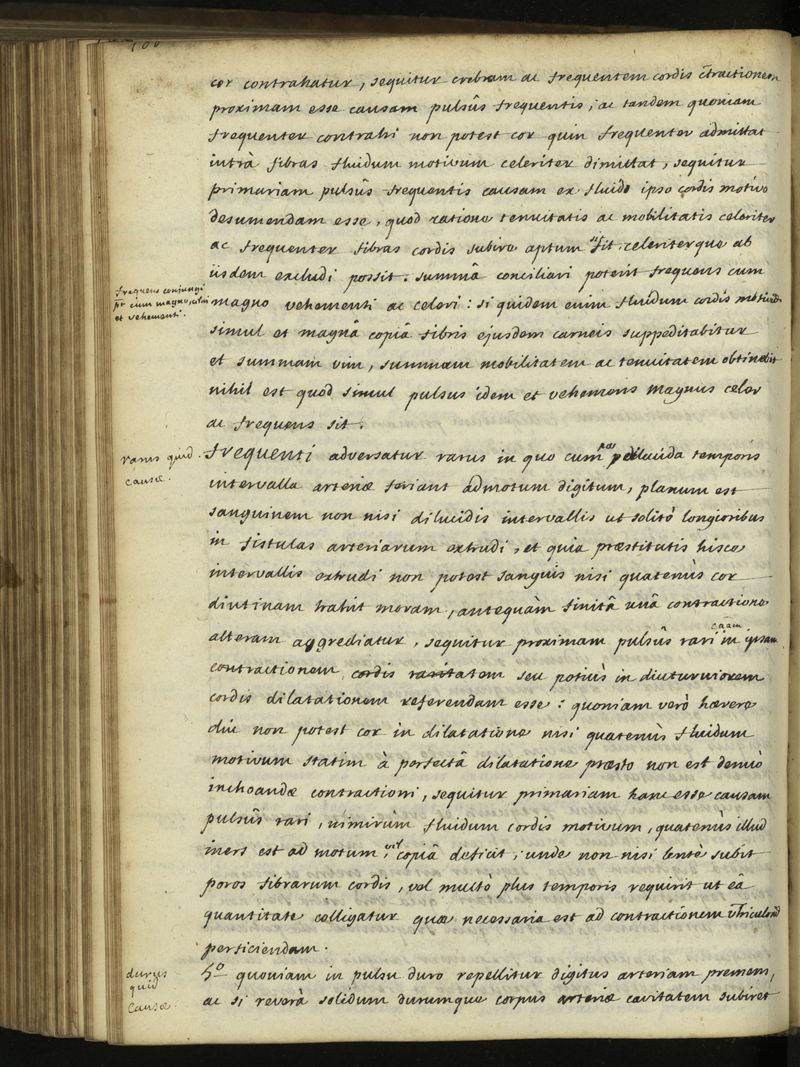 cor contrahatur, sequitur crebram ac frequentem cordis c̄tractionem
proximam esse causam pulsûs frequentis, ac tandem quoniam
frequenter contrahi non potest cor quin frequenter admittat
intrà fibras fluidum motivum celeriter dimittat, sequitur
primariam pulsûs frequentis causam ex fluido ipso cordis motivo
desumendam esse, quod ratione tenuitatis ac mobilitatis celeriter
ac frequenter fibras cordis subire aptum sit, celeriterque ab
iisdem excludi possit. summâ conciliari poterit frequens cum
frequens conjungi
pt cum magno, celeri
et vehementi.
magno vehementi ac celeri: si quidem enim fluidum cordis motivum
simul et magnâ copiâ fibris ejusdem carneis suppeditabitur
et summam vim, summam mobilitatem ac tenuitatem obtinebit
nihil est quod simul pulsus idem et vehemens magnus celer
ac frequens sit.
rarus quid
causæ.
frequenti adversatur rarus in quo cum per dilucida temporis
intervalla arteriæ feriant admotum digitum, planum est
sanguinem non nisi dilucidis intervallis ut solitò longioribus
in fistulas arteriarum extrudi, et quia præstitutis hisce
intervallis extrudi non potest sanguis nisi quatenùs cor
diutinam trahit moram, antequàm finitâ unâ contractione
alteram aggrediatur, sequitur proximam pulsûs rari caam in ipsam
contractionem cordis raritatem seu potiùs in diuturniorem
cordis dilatationem referendam esse: quoniam verò hærere
diu non potest cor in dilatatione nisi quatenùs fluidum
motivum statim à perfectâ dilatatione præsto non est denuò
inchoandæ contractioni, sequitur primariam hanc esse causam
pulsûs rari, nimirùm fluidum cordis motivum, quatenùs illud
iners est ad motum, vel copiâ deficit, unde non nisi lentè subit
poros fibrarum cordis, vel multò plus temporis requirit ut eâ
quantitate colligatur quæ necessaria est ad contractionem
perficiendam.
durus
quid
Causæ.
5o quoniam in pulsu duro repellitur digitus arteriam premens,
ac si reverà solidum durumque corpus arteriæ cavitatem subiret